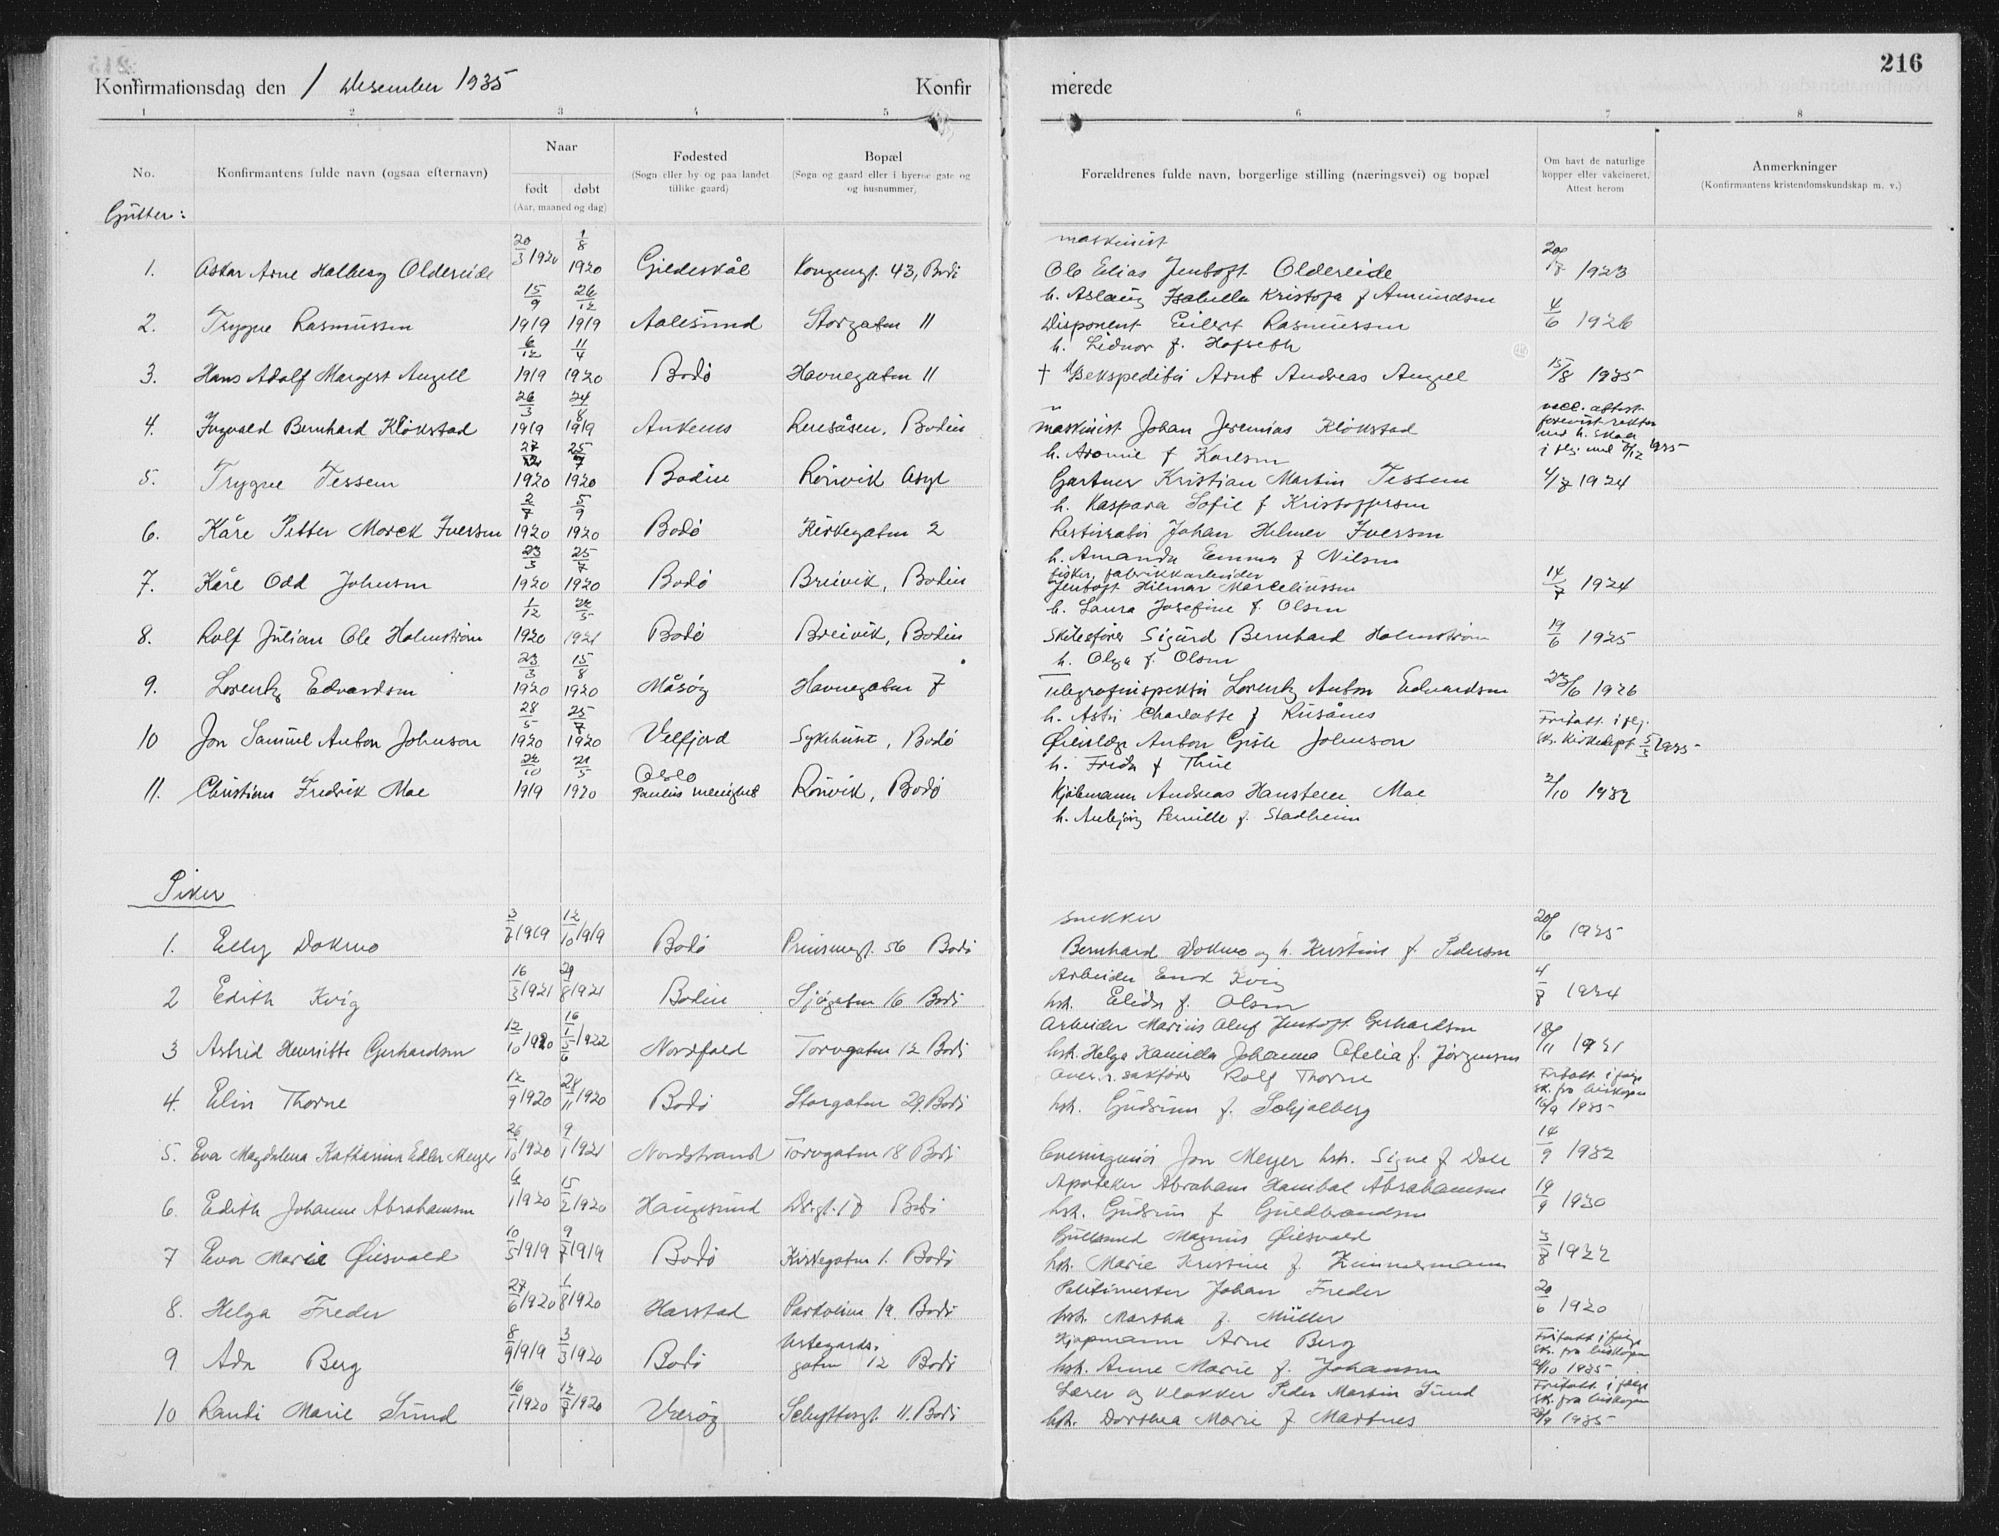 216
Konfirmationsdag den 1 Desember 1935 Konfirmerede
1 2 3 4 5 6 7 8
No. Konfirmantens fulde navn (ogsaa efternavn) Naar født døbt (Aar, maaned og dag) Fødested (Sogn eller by og paa landet tillike gaard) Bopæl (Sogn og gaard eller i byerne gate og og husnummer) Forældrenes fulde navn, borgerlige stilling (næringsvei) og bopæl Om havt de naturlige kopper eller vakcineret. Attest herom Anmerkninger (Konfirmantens kristendomskundskap m. v.)
Gutter:
maskinist
1. Oskar Arne Halberg Oldereide 20/3 1920 1/8 1920 Gildeskål Kongensgt. 43, Bodø Ole Elias Jentoft Oldereide 1923
h. Aslaug Isabella Kristofa f Amundsen
2. Trygve Rasmussen 15/9 1919 26/12 1919 Aalesund Storgaten 11 Disponent Eilert Rasmussen 4/6 1926
h. Lidvor f. Hofseth
3. Hans Adolf Margert Angell 6/12 1919 11/4 1920 Bodø Havnegaten 11 † Arnt Andreas Angell 15/8 1935
4. Ingvald Bernhard Klokstad 26/3 1919 24/8 1919 Ankenes Bodin maskinist Johan Jeremias Klokstad
h. f Karlsen
5. Trygve Tessem 27 1920 25/7 1920 Bodin Rønvik Asyl Gartner Kristian Martin Tessem 4/7 1924
h. Kaspara Sofie f Kristoffersen
6. Kåre Petter Morck Iversen 2/7 1920 5/9 1920 Bodø Kirkegaten 2 Restauratør Johan Helmer Iversen
h. Amanda Emma f Nilsen
fisker, fabrikkarbeider
7. Kåre Odd Johnsen 23/3 1920 25/7 1920 Bodø Breivik, Bodin Jentoft Hilmar Marceliussen 14/7 1924
h. Laura Josefine f. Olsen
8. Rolf Julian Ole Holmstrøm 1/12 1920 22/5 1921 Bodø Breivik, Bodin Skibsfører Sigurd Bernhard Holmstrøm 19/6 1925
h. Olga f. Olsen
9. Lorentz Edvardsen 23/3 1920 15/8 1920 Måsøy Havnegaten 7 Telegrafinspektør Lorentz Anton Edvardsen 23/6 1926
h. Asta Charlotte f Rusånes
10 Jon Samuel Anton Johnson 28/5 1920 25/7 1920 Velfjord Sykehuset, Bodø Øienlæge Anton Johnson
h. Freda f Thue
11. Christian Fredrik Moe 22/10 1919 21/5 1920 Oslo Paulus menighet Rønvik, Bodø Kjøbmann Andreas Hansteen Moe 2/10 1932
h. Pernille f. Stadheim
Piker
snekker
1. Elly Dokmo 1919 12/10 1919 Bodø Prinsensgt. 56 Bodø Bernhard Dokmo og h. Kristine f. Pedersen 20/6 1925
2 Edith Kvig 16/3 1921 29/8 1921 Bodin Sjøgaten 16 Bodø Arbeider Kvig 4/8 1924
hstr. Elida f. Olsen
3 Astrid Henriette Gerhardsen 12/10 1920 16/1 1922 Nordfold Torvgaten 12 Bodø Arbeider Marius Oluf Jentoft Gerhardsen 18/11 1921
hstr. Helga Kamilla Johanna Otelia f. Jørgensen
4. Elin Thorne 12/9 1920 28/11 1920 Bodø Storgaten 29. Bodø Over.r.sakfører Rolf Thorne Fritatt i følge sk. fra biskopen 16/9 1935
hstr. Gudrun f. Schjølberg
5. Eva Magdalena Katharina Edler Meyer 26/10 1920 9/1 1921 Nordstrand Torvgaten 18 Bodø Overingeniør Jon Meyer hstr. Signe f Dall 14/9 1932
6. Edith Johanne Abrahamsen 6/1 1920 15/2 1920 Haugesund Dr.gt. 10 Bodø Apoteker Abraham Hanibal Abrahamsen 19/9 1930
hstr. Gudrun f Guldbrandsen
7 Eva Marie Øiesvold 10/5 1919 9/7 1919 Bodø Kirkegaten 1. Bodø Gullsmed Magnus Øiesvold 3/8 1922
hstr. Marie Kristine f Zimmermann
8. Helga Freder 27/6 1920 1/8 1920 Harstad Parkveien 19. Bodø Politimester Johan Freder 20/6 1920
hstr. Martha f. Müller
9 Ada Berg 8/9 1919 3/3 1920 Bodø gaten 12 Bodø Kjøpmann Arne Berg Fritatt i følge sk. fra biskopen 1935
hstr. Anne Marie f. Johansen
10 Randi Marie Sund 16/1 1920 12/8 1920 Værøy Schyttesgt. 11. Bodø Lærer og klokker Peder Martin Sund Fritatt i følge sk. fra biskopen 1935
hstr. Dorthea Marie f Martnes